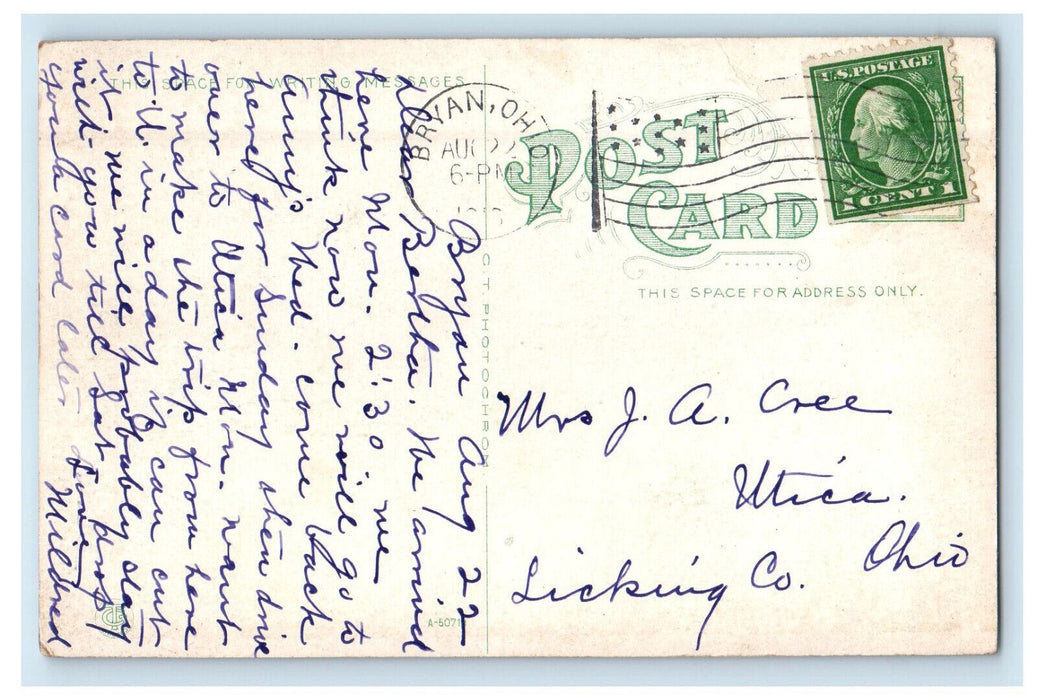 THIS SPACE FOR WRITING MESSAGES
Bryan Aug 22
Dear Bertha. We arrived
here Mon. 2:30 we
think now we will go to
Wed. come back
here for Sunday then drive
over to Utica Mon. want
to make the trip from here
to U. in a day if can cut
it we will probably stay
will go till Sat. drop
you a card later Love
Mildred
BRYAN, OHIO
AUG 22
6-PM
POST
CARD
U.S. POSTAGE
1 CENT 1
THIS SPACE FOR ADDRESS ONLY.
C. T. PHOTOCHROM
A-5071
Mrs J. A. Cree
Utica.
Licking Co. Ohio